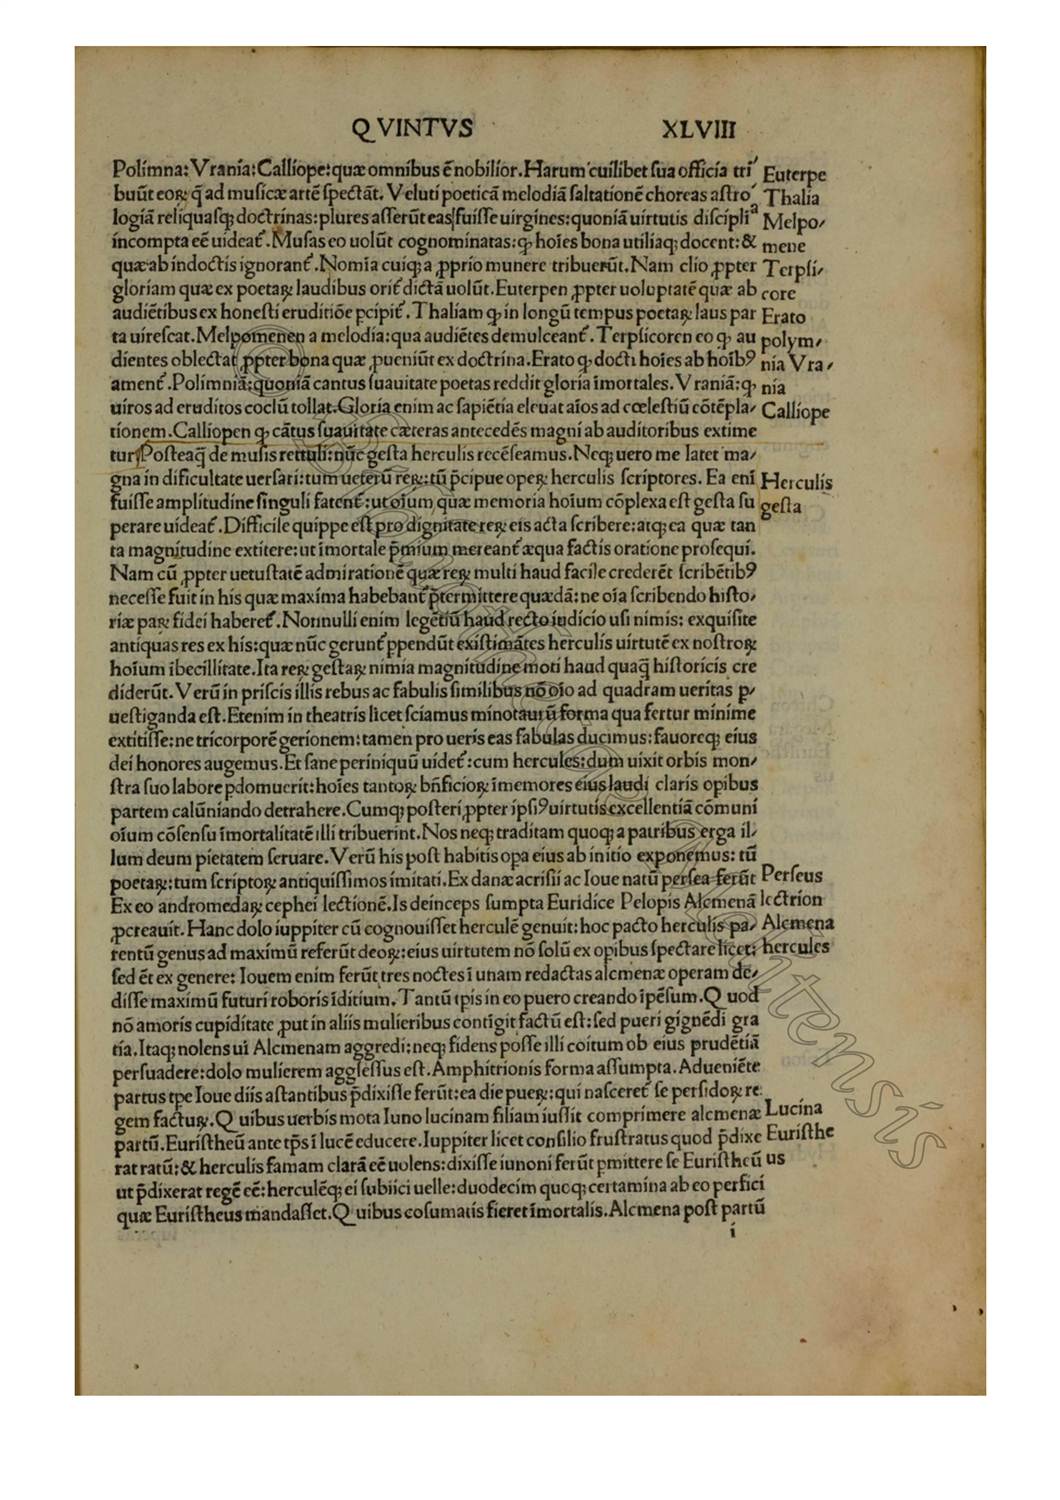 QVINTVS XLVIII
Polimna: Vrania: Calliope: quæ omnibus ē nobilior. Harum cuilibet sua officia tri
buūt eoꝝ q̄ ad musicæ artē spectāt. Veluti poeticā melodiā saltationē choreas astro
logiā reliquasqꝫ doctrinas: plures asserūt eas fuisse uirgines: quoniā uirtutis discipli
incompta eē uideat᷑. Musas eo uolūt cognominatas: ꝙ hoīes bona utiliaqꝫ docent: &
quæ ab indoctis ignorant᷑. Nomīa cuiqꝫ a ꝓprio munere tribuerūt. Nam clio ꝓpter
gloriam quæ ex poetaꝝ laudibus orit᷑ dictā uolūt. Euterpen ꝓpter uoluptatē quæ ab
audiētibus ex honesti eruditiōe ꝑcipit᷑. Thaliam ꝙ in longū tempus poetaꝝ laus par
ta uirescat. Melpomenen a melodia: qua audiētes demulceant᷑. Terpsicoren eo ꝙ au
dientes oblectat ꝓpter bona quæ ꝓueniūt ex doctrina. Erato ꝙ docti hoīes ab hoībꝰ
ament᷑. Polimniā: quoniā cantus suauitate poetas reddit gloria īmortales. Vraniā: ꝙ
uiros ad eruditos coelū tollat. Gloria enim ac sapiētia eleuat aīos ad cœlestiū cōtēpla/
tionem. Calliopen ꝙ cātus suauitate cæteras antecedēs magni ab auditoribus extime
tur. Posteaq̄ de musis rettuli: nūc gesta herculis recēseamus. Neqꝫ uero me latet ma/
gna in dificultate uersari: tum ueterū reꝝ: tū p̄cipue opeꝝ herculis scriptores. Ea enī
fuisse amplitudine singuli fatent᷑: ut oīum quæ memoria hoīum cōplexa est gesta su
perare uideat᷑. Difficile quippe est pro dignitate reꝝ eis acta scribere: atqꝫ ea quæ tan
ta magnitudine extitere: ut īmortale p̄mium mereant᷑ æqua factis oratione prosequi.
Nam cū ꝓpter uetustatē admirationē quæ reꝝ multi haud facile crederēt scribētibꝰ
necesse fuit in his quæ maxima habebant᷑ p̄termittere quædā: ne oīa scribendo histo/
riæ paꝝ fidei haberet᷑. Nonnulli enim legētiū haud recto iudicio usi nimis: exquisite
antiquas res ex his: quæ nūc gerunt᷑ ꝑpendūt existimātes herculis uirtutē ex nostroꝝ
hoīum ībecillitate. Ita reꝝ gestaꝝ nimia magnitudine moti haud quaq̄ historicis cre
diderūt. Verū in priscis illis rebus ac fabulis similibus nō oīo ad quadram ueritas ꝑ/
uestiganda est. Etenim in theatris licet sciamus minotaurū forma qua fertur minime
extitisse: ne tricorporē gerionem: tamen pro ueris eas fabulas ducimus: fauoreqꝫ eius
dei honores augemus. Et sane periniquū uidet᷑: cum hercules: dum uixit orbis mon/
stra suo labore ꝑdomuerit: hoīes tantoꝝ bn̄ficioꝝ īmemores eius laudi claris opibus
partem calūniando detrahere. Cumqꝫ posteri ꝓpter ipsiꝰ uirtutis excellentiā cōmuni
oīum cōsensu īmortalitatē illi tribuerint. Nos neqꝫ traditam quoqꝫ a patribus erga il/
lum deum pietatem seruare. Verū his post habitis opa eius ab initio exponemus: tū
poetaꝝ: tum scriptoꝝ antiquissimos imitati. Ex danæ acrisii ac Ioue natū persea ferūt
Ex eo andromedaꝝ cephei lectionē. Is deinceps sumpta Euridice Pelopis Alcmenā
ꝓcreauit. Hanc dolo iuppiter cū cognouisset herculē genuit: hoc pacto herculis pa/
rentū genus ad maximū referūt deoꝝ: eius uirtutem nō solū ex opibus spectare licet:
sed ēt ex genere: Iouem enim ferūt tres noctes ī unam redactas alcmenæ operam de/
disse maximū futuri roboris īditium. Tantū tꝑis in eo puero creando īpēsum. Quod
nō amoris cupiditate ꝓut in aliis mulieribus contīgit factū est: sed pueri gignēdi gra
tia. Itaqꝫ nolens ui Alcmenam aggredi: neqꝫ fidens posse illi coitum ob eius prudētiā
persuadere: dolo mulierem aggressus est. Amphitrionis forma assumpta. Adueniēte
partus tꝑe Ioue diis astantibus p̄dixisse ferūt: ea die pueꝝ: qui nasceret᷑ se persidoꝝ re
gem factuꝝ. Quibus uerbis mota Iuno lucinam filiam iussit comprimere alcmenæ
partū. Euristheū ante tp̄s ī lucē educere. Iuppiter licet consilio frustratus quod p̄dixe
rat ratū: & herculis famam clarā eē uolens: dixisse iunoni ferūt ꝑmittere se Euristheū
ut p̄dixerat regē eē: herculēqꝫ ei subiici uelle: duodecim quoqꝫ certamina ab eo perfici
quæ Euristheus mandasset. Quibus cosumatis fieret īmortalis. Alcmena post partū
i
Euterpe
Thalia
Melpo/
mene
Terpsi/
core
Erato
polym/
nia Vra/
nia
Calliope
Herculis
gesta
Perseus
lectrion
Alcmena
hercules
Lucina
Euristhe
us